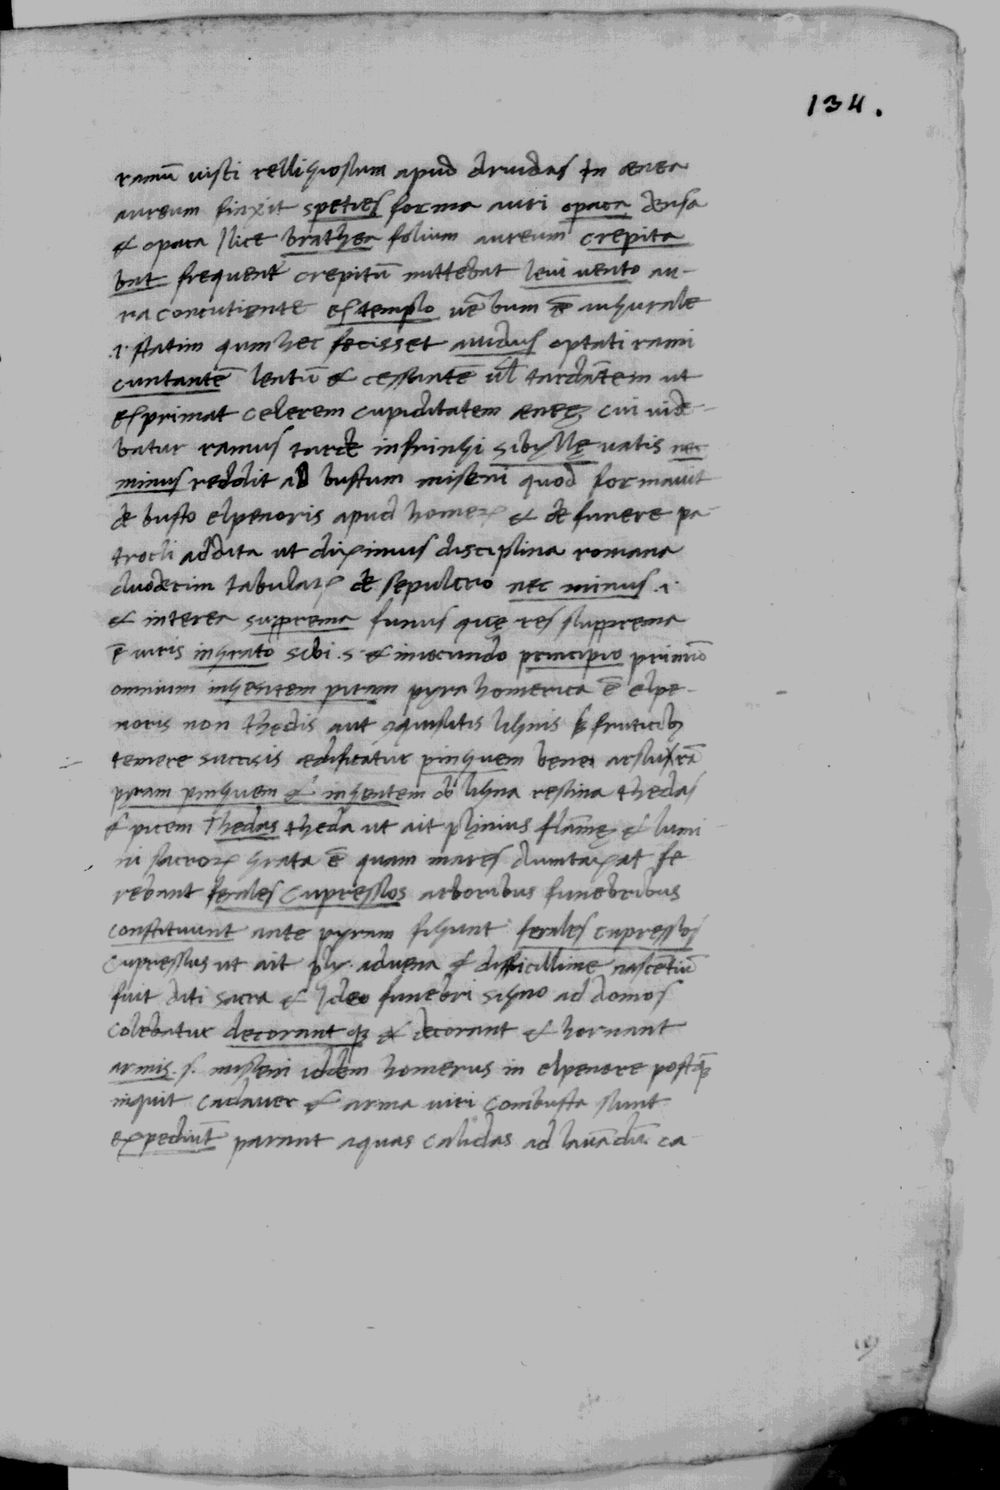 134.
ramū visci relligiosum apud druidas in ænea
aureum finxit speties forma auri opaca densa
& opaca Ilice brathea folium aureum crepita
bat frequent crepitū mittebat leni vento au-
ra concutiente extemplo vēbum ē augurale
.i. statim qum hec fecisset avidus optati rami
cunctantē lentū & cessantē ul tardātem ut
exprimat celerem cupiditatem æneę cui vide
batur ramus tarde infringi sibyllę vatis nec
minus reddit ad bustum miseni quod formavit
de busto elpenoris apud homeꝝ & de funere pa-
trocli addita ut diximus disciplina romana
duodecim tabulaꝝ de sepulcro nec minus .i.
& interea supprema funus quę res supprema
ē viris ingrato sibi .s. & iniocundo principio primū
omnium ingentem piram pyra homerica ē elpe-
noris non thędis aut quisitis lignis s fruticibꝫ
temere succisis ædificatur pinguem bene arsurā
pyram pinguem & ingentem ob ligna resina thedas
& picem Thedas theda ut ait plinius flamę & lumi
ni sacroꝝ grata ē quam mares dumtaxat fe
rebant ferales cupressos arboribus funebribus
constituunt ante pyram figunt ferales cupressos
Cupressus ut ait pli. advena & difficillime nascētiū
fuit diti sacra & Ideo funebri signo ad domos
colebatur decorantqꝫ & decorant & hornant
armis .s. miseni iddem homerus in elpenore postqꝫ
inquit cadaver & arma viri combusta sunt
expediūt parant aquas calidas ad lavādū ca